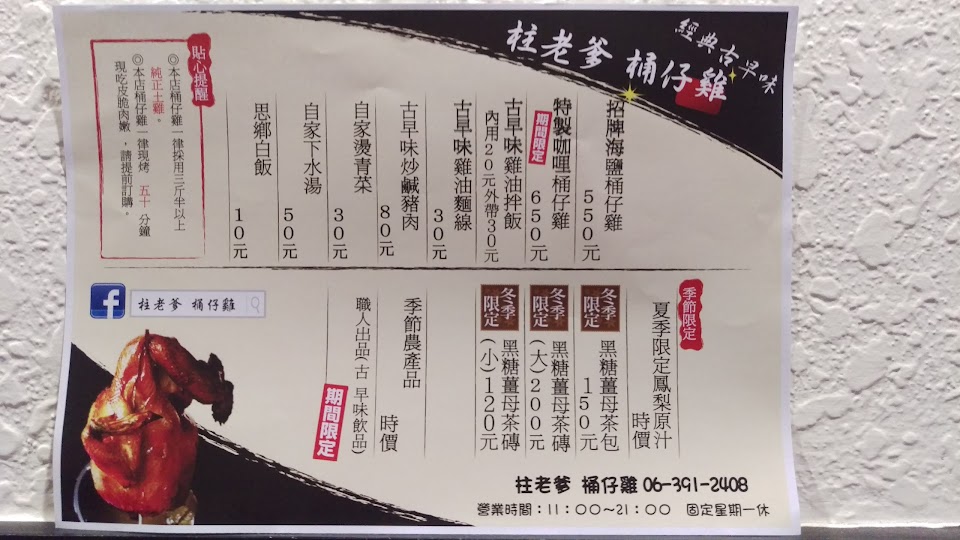 經典古早味
柱老爹 桶仔雞
招牌海鹽桶仔雞 550元
特製咖哩桶仔雞 650元
期間限定
古早味雞油拌飯
內用20元外帶30元
古早味雞油麵線 30元
古早味炒鹹豬肉 80元
自家燙青菜 30元
自家下水湯 50元
思鄉白飯 10元
貼心提醒
◎本店桶仔雞一律採用三斤半以上
純正土雞。
◎本店桶仔雞一律現烤 五十 分鐘
現吃皮脆肉嫩，請提前訂購。
季節限定
夏季限定鳳梨原汁
時價
冬季限定 黑糖薑母茶包 150元
冬季限定 黑糖薑母茶磚(大)200元
冬季限定 黑糖薑母茶磚(小)120元
季節農產品 時價
職人出品(古早味飲品)
期間限定
f 柱老爹 桶仔雞
柱老爹 桶仔雞 06-391-2408
營業時間：11：00~21：00 固定星期一休